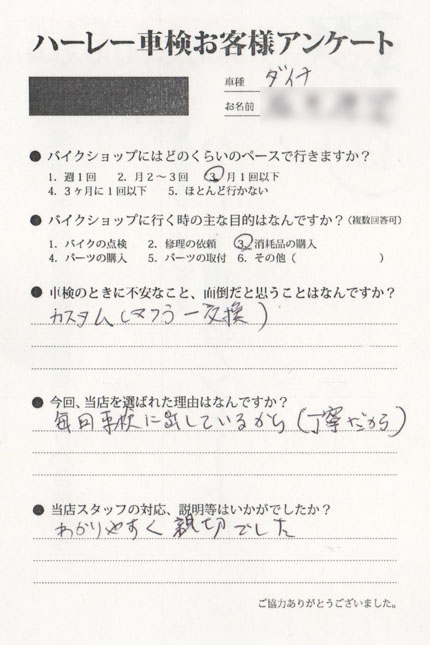 ハーレー車検お客様アンケート
車種 ダイナ
お名前
● バイクショップにはどのくらいのペースで行きますか？
1. 週1回 2. 月2〜3回 3. 月1回以下
4. 3ヶ月に1回以下 5. ほとんど行かない
● バイクショップに行く時の主な目的はなんですか？(複数回答可)
1. バイクの点検 2. 修理の依頼 3. 消耗品の購入
4. パーツの購入 5. パーツの取付 6. その他（ ）
● 車検のときに不安なこと、面倒だと思うことはなんですか？
カスタム(マフラー交換)
● 今回、当店を選ばれた理由はなんですか？
毎回車検に出しているから(丁寧だから)
● 当店スタッフの対応、説明等はいかがでしたか？
わかりやすく親切でした
ご協力ありがとうございました。